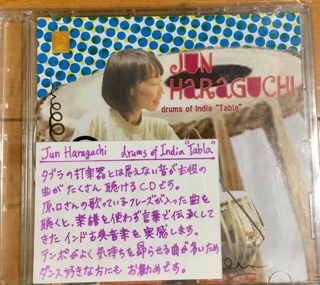 JUN
HARAGUCHI
drums of India "Tabla"
Jun Haraguchi drums of India "Tabla"
タブラの打楽器とは思えない音が主役の
曲がたくさん聴けるCDです。
原口さんの歌っているフレーズが入った曲を
聴くと、楽譜を使わず言葉で伝承して
きたインド古典音楽を実感します。
テンポがよく気持ちを昂らせる曲が多いため
ダンス好きな方にもお勧めです。